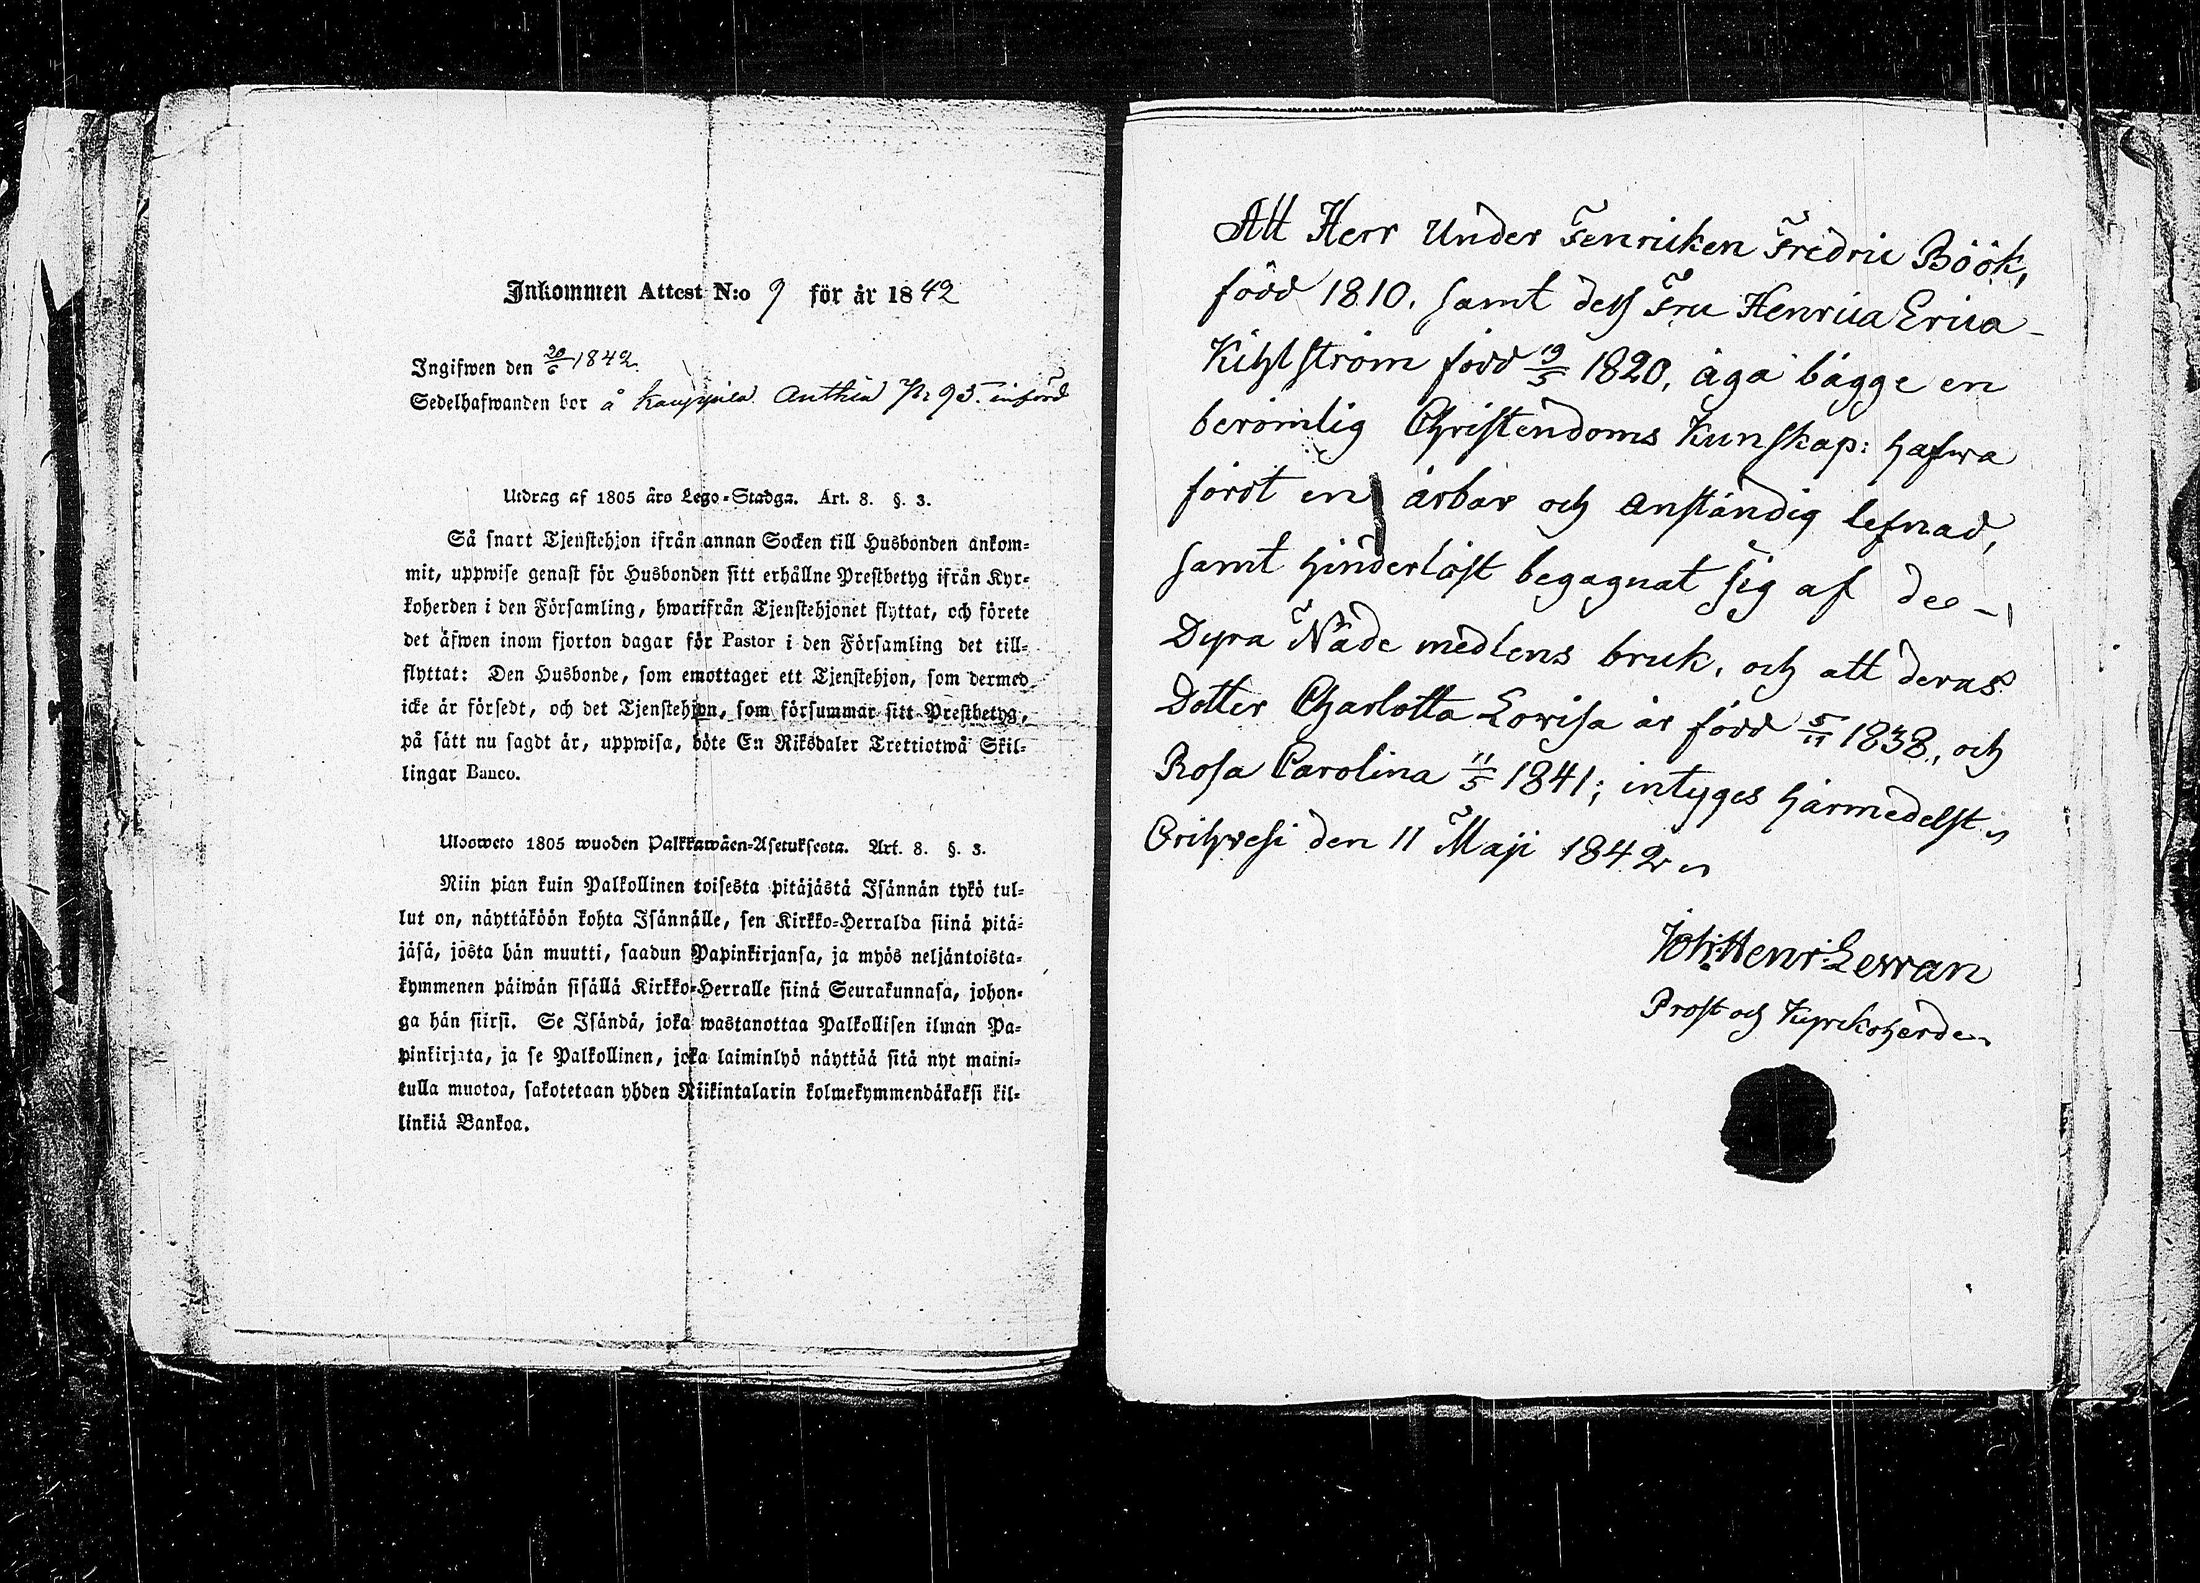 Inkommen Attest N:o 9 för år 1842
Ingifwen den 20/6 1842.
Sedelhafwanden bor å Kauppila Anthia 95. införd
Utdrag af 1805 års Lego-Stadga. Art. 8. §. 3.
Så snart Tjenstehjon ifrån annan Socken till Husbonden ankom-
mit, uppwise genast för Husbonden sitt erhållne Prestbetyg ifrån Kyr-
koherden i den Församling, hwarifrån Tjenstehjonet flyttat, och förete
det äfwen inom fjorton dagar för Pastor i den Församling det till-
flyttat: Den Husbonde, som emottager ett Tjenstehjon, som dermed
icke är försedt, och det Tjenstehjon, som försummar sitt Prestbetyg,
på sätt nu sagdt är, uppwisa, böte En Riksdaler Trettiotwå Skil-
lingar Banco.
Ulosweto 1805 wuoden Palkkawäen-Asetuksesta. Art. 8. §. 3.
Niin pian kuin Palkollinen toisesta pitäjästä Isännän tykö tul-
lut on, näyttäköön kohta Isännälle, sen Kirkko-Herralda siinä pitä-
jäsä, josta hän muutti, saadun Papinkirjansa, ja myös neljäntoista-
kymmenen päiwän sisällä Kirkko-Herralle siinä Seurakunnasa, johon-
ga hän siirsi. Se Isändä, joka wastanottaa Palkollisen ilman Pa-
pinkirjata, ja se Palkollinen, joka laiminlyö näyttää sitä nyt maini-
tulla muotoa, sakotetaan yhden Riikintalarin kolmekymmendäkaksi kil-
linkiä Bankoa.
Att Herr Under Fenricken Fredric Böök,
född 1810. samt dess Fru Henrica Erica
Kihlström född 19/5 1820, äga bägge en
berömlig Christendoms Kunskap: hafwa
fördt en ärbar och anständig lefnad,
samt hinderlöst begagnat sig af de
Dyra Nåde medlens bruk, och att deras
Dotter Charlotta Lovisa är född 5/11 1838, och
Rosa Carolina 11/5 1841; intyges härmedelst
Orihvesi den 11 Maji 1842
Joh: Henr: Lewan
Prost och Kyrckoherde